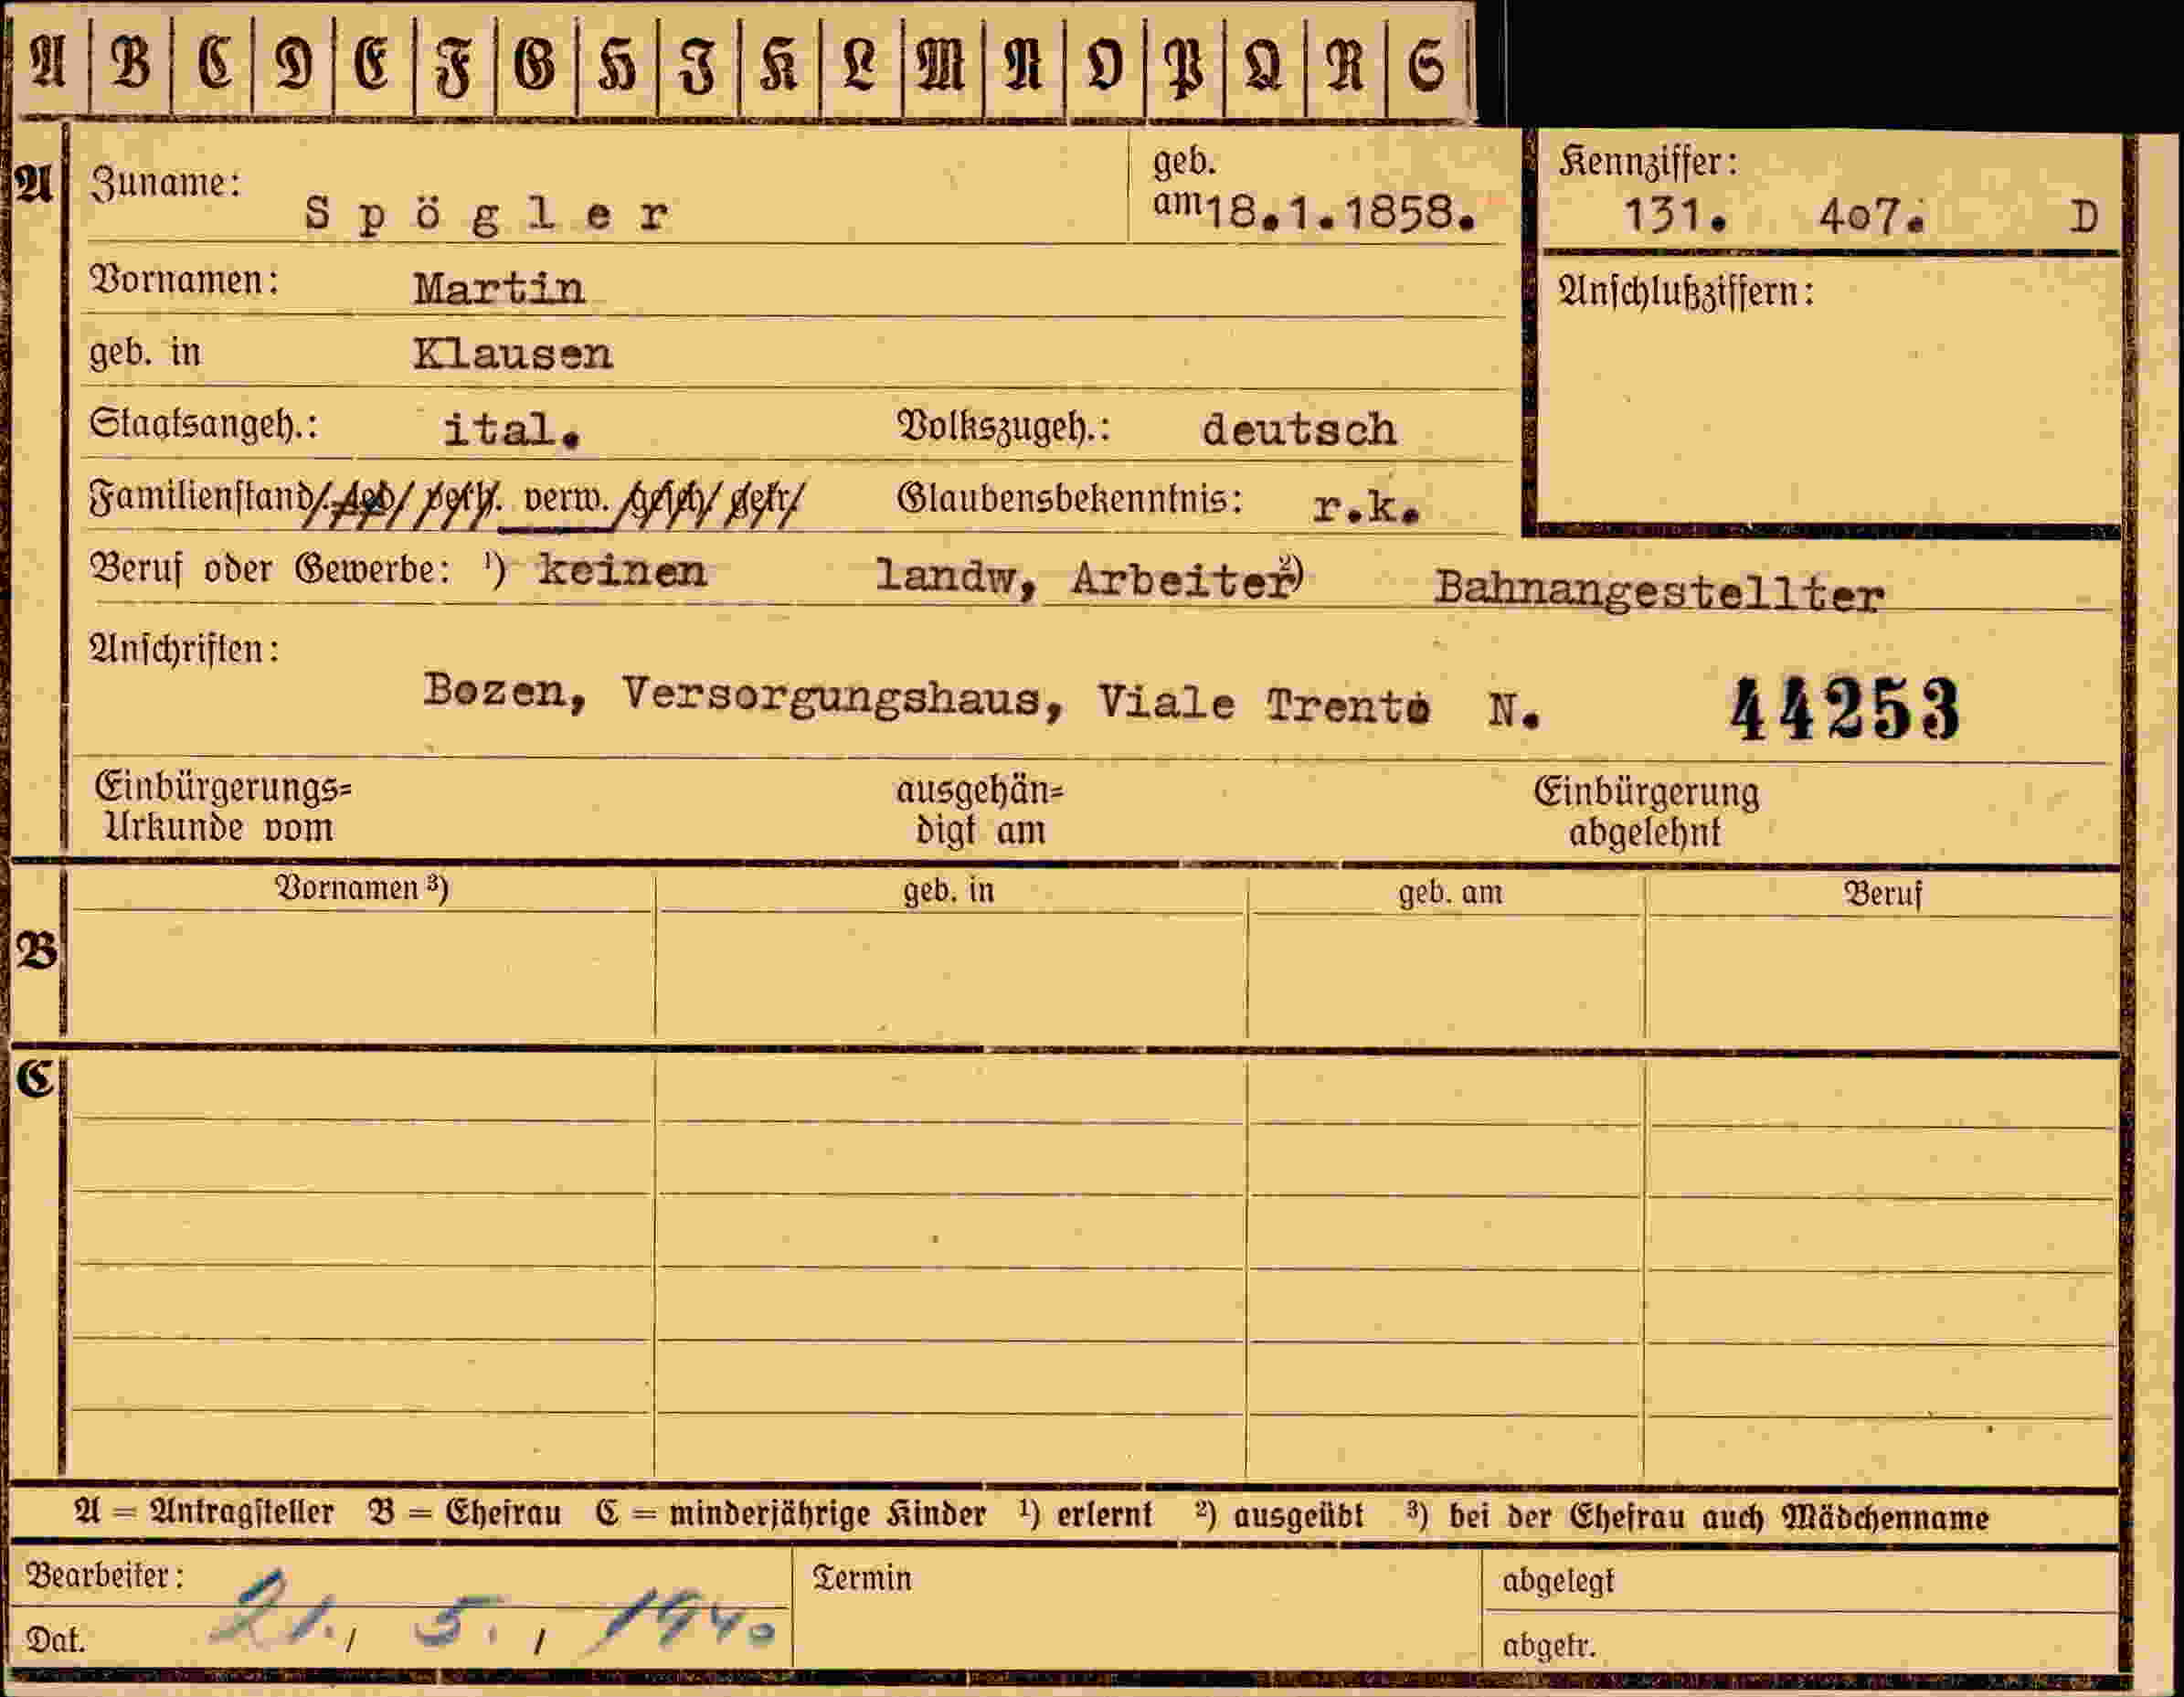 A B C D E F G H I K L M N O P Q R S
A Zuname: Spögler geb. am 18.1.1858. Kennziffer: 131. 407. D
Vornamen: Martin Anschlußziffern:
geb. in Klausen
Staatsangeh.: ital. Volkszugeh.: deutsch
Familienstand: led. verh. verw. gesch. getr. Glaubensbekenntnis: r.k.
Beruf oder Gewerbe: ¹) keinen landw, Arbeiter ²) Bahnangestellter
Anschriften:
Bozen, Versorgungshaus, Viale Trento N. 44253
Einbürgerungs=
Urkunde vom
ausgehän=
digt am
Einbürgerung
abgelehnt
Vornamen ³) geb. in geb. am Beruf
B
C
A = Antragsteller B = Ehefrau C = minderjährige Kinder ¹) erlernt ²) ausgeübt ³) bei der Ehefrau auch Mädchenname
Bearbeiter: Termin abgelegt
Dat. 21. 5. 1940 abgetr.